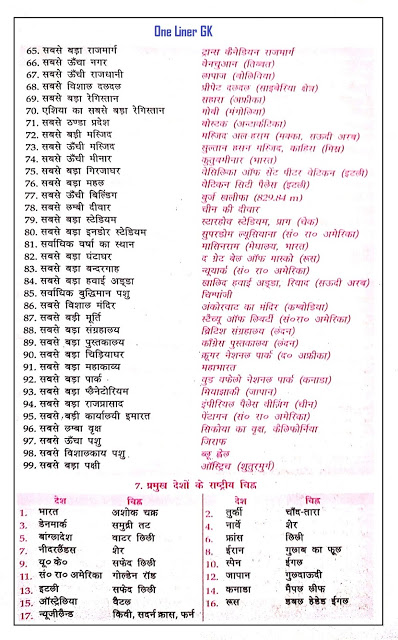 One Liner GK
65. सबसे बड़ा राजमार्ग ट्रान्स कैनेडियन राजमार्ग
66. सबसे ऊँचा नगर वेनचुआन (तिब्बत)
67. सबसे ऊँची राजधानी लापाज (वोलिविया)
68. सबसे विशाल दलदल प्रीपेट दलदल (साइबेरिया क्षेत्र)
69. सबसे बड़ा रेगिस्तान सहारा (अफ्रीका)
70. एशिया का सबसे बड़ा रेगिस्तान गोबी (मंगोलिया)
71. सबसे ठण्डा प्रदेश वोस्टक (अन्टार्कटिका)
72. सबसे बड़ी मस्जिद मस्जिद अल हराम (मक्का, सऊदी अरब)
73. सबसे ऊँची मस्जिद सुल्तान हसन मस्जिद, काहिरा (मिस्र)
74. सबसे ऊँची मीनार कुतुबमीनार (भारत)
75. सबसे बड़ा गिरजाघर वेसिलिका ऑफ सेंट पीटर वेटिकन (इटली)
76. सबसे बड़ा महल वेटिकन सिटी पैलेस (इटली)
77. सबसे ऊँची बिल्डिंग बुर्ज खलीफा (829.84 m)
78. सबसे लम्बी दीवार चीन की दीवार
79. सबसे बड़ा स्टेडियम स्टारहोव स्टेडियम, प्राग (चेक)
80. सबसे बड़ा इनडोर स्टेडियम सुपरडोम ल्युसियाना (सं० रा० अमेरिका)
81. सर्वाधिक वर्षा का स्थान मासिनराम (मेघालय, भारत)
82. सबसे बड़ा घंटाघर द ग्रेट बेल ऑफ मास्को (रूस)
83. सबसे बड़ा बन्दरगाह न्यूयार्क (सं० रा० अमेरिका)
84. सबसे बड़ा हवाई अड्डा खालिद हवाई अड्डा, रियाद (सऊदी अरब)
85. सर्वाधिक बुद्धिमान पशु चिम्पांजी
86. सबसे विशाल मंदिर अंकोरवाट का मंदिर (कम्बोडिया)
87. सबसे बड़ी मूर्ति स्टैच्यू ऑफ लिबर्टी (सं०रा० अमेरिका)
88. सबसे बड़ा संग्रहालय ब्रिटिश संग्रहालय (लंदन)
89. सबसे बड़ा पुस्तकालय काँग्रेस पुस्तकालय (लंदन)
90. सबसे बड़ा चिड़ियाघर क्रूगर नेशनल पार्क (द० अफ्रीका)
91. सबसे बड़ा महाकाव्य महाभारत
92. सबसे बड़ा पार्क वुड वफेलो नेशनल पार्क (कनाडा)
93. सबसे बड़ा प्लैनेटोरियम मियाझाकी (जापान)
94. सबसे बड़ा राजप्रासाद इंपीरियल पैलेस बीजिंग (चीन)
95. सबसे बड़ी कार्यालयी इमारत पेंटागन (सं० रा० अमेरिका)
96. सबसे लम्बा वृक्ष सिकोया का वृक्ष, कैलिफोर्निया
97. सबसे ऊँचा पशु जिराफ
98. सबसे विशालकाय पशु ब्लू ह्वेल
99. सबसे बड़ा पक्षी ऑस्ट्रिच (शुतुरमुर्ग)
7. प्रमुख देशों के राष्ट्रीय चिह्न
देश चिह्न देश चिह्न
1. भारत अशोक चक्र 2. तुर्की चाँद-तारा
3. डेनमार्क समुद्री तट 4. नार्वे शेर
5. बांग्लादेश वाटर लिली 6. फ्रांस लिली
7. नीदरलैंडस शेर 8. ईरान गुलाब का फूल
9. यू० के० सफेद लिली 10. स्पेन ईगल
11. सं० रा० अमेरिका गोल्डेन रॉड 12. जापान गुलदाऊदी
13. इटली सफेद लिली 14. कनाडा मैपल लीफ
15. ऑस्ट्रेलिया वैटल 16. रूस डबल हेडेड ईगल
17. न्यूजीलैन्ड किवी, सदर्न क्रास, फर्न